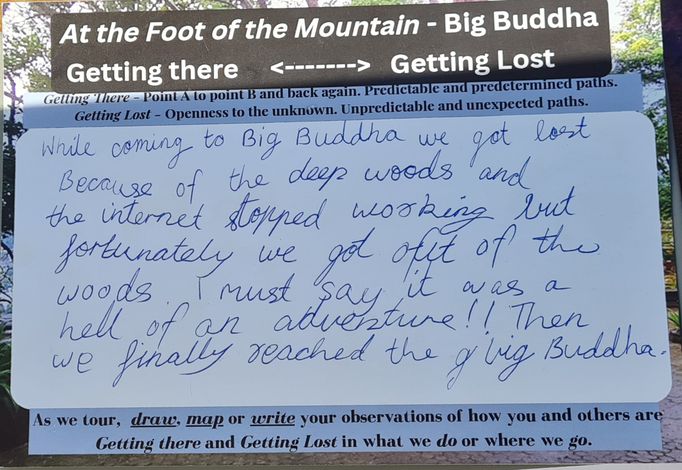 At the Foot of the Mountain - Big Buddha
Getting there <-------> Getting Lost
Getting There - Point A to point B and back again. Predictable and predetermined paths.
Getting Lost - Openness to the unknown. Unpredictable and unexpected paths.
While coming to Big Buddha we got lost
Because of the deep woods and
the internet stopped working but
fortunately we got out of the
woods. I must say it was a
hell of an adventure!! Then
we finally reached the big Buddha.
As we tour, draw, map or write your observations of how you and others are
Getting there and Getting Lost in what we do or where we go.